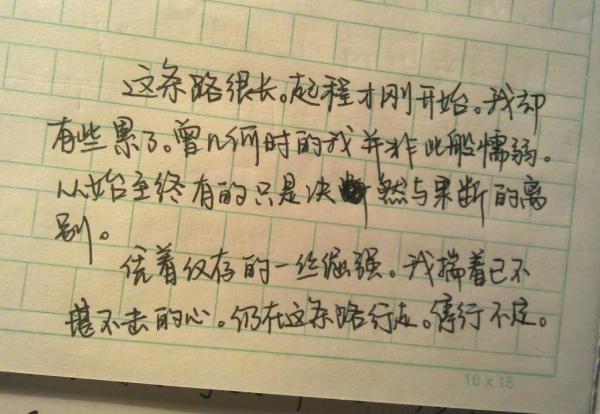 这条路很长。起程才刚开始。我却
有些累了。曾几何时的我并非此般懦弱。
从始至终有的只是决然与果断的离
别。
凭着仅存的一丝倔强。我揣着已不
堪不击的心。仍在这条路行走。停行不定。
16 x 15